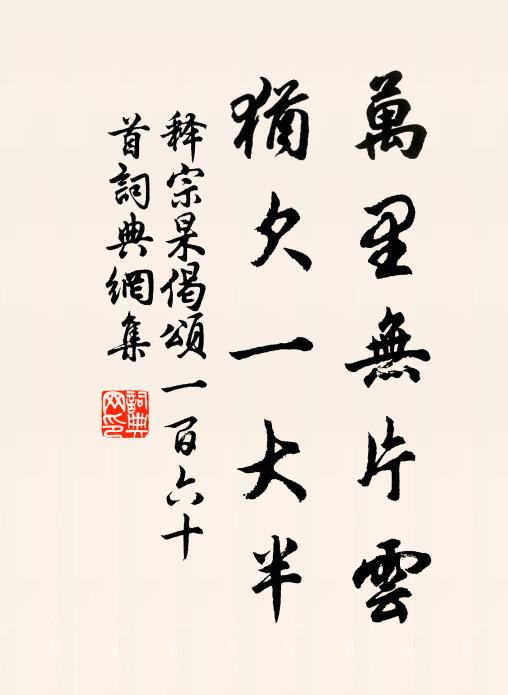 萬里無片雲
猶欠一大半
释宗杲偈頌一百六十
首詞典網集
詞典
网印